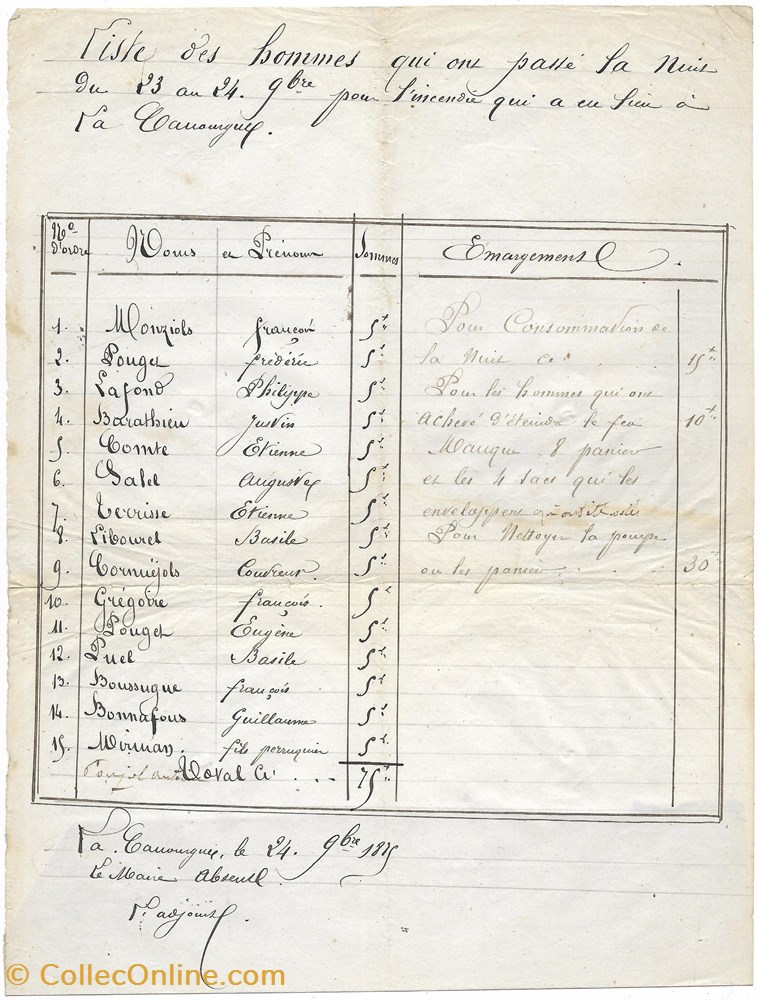 Liste des hommes qui ont passé la Nuit
du 23 au 24. 9bre pour l'incendie qui a eu lieu à
La Canourgue.
No d'ordre Noms et Prénoms Sommes Emargement
1. Monziols françois 5f
2. Pouget frédéric 5f
3. Lafond Philippe 5f
4. Barathieu Justin 5f
5. Comte Etienne 5f
6. Galel Auguste 5f
7. Terrisse Etienne 5f
8. Libourel Basile 5f
9. Cornuéjols Couvreur 5f
10. Grégoire françois. 5f
11. Pouget Eugène 5f
12. Puel Basile 5f
13. Boussugue françois 5f
14. Bonnafous Guillaume 5f
15. Mirman. fils perruquier 5f
Total Ci . . . 75f
Pour Consommation de
la Nuit Ci . . . 15f
Pour les hommes qui ont
achevé d'éteindre le feu 10f
Manque 8 panier
et les 4 sacs qui les
enveloppent
Pour Nettoyer la pompe
ou les panier . . . 30f
La Canourgue, le 24. 9bre 1875
Le Maire Absent
L'adjoint
© CollecOnline.com